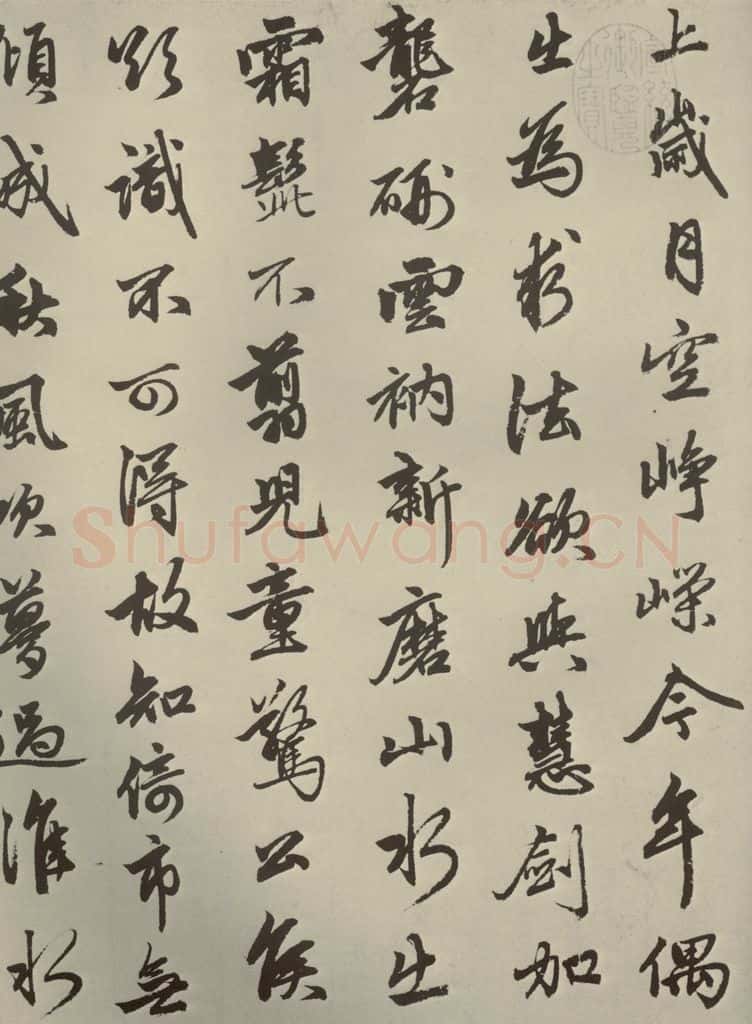 上歲月空崢嶸今年偶
出為求法欲與慧劍加
礱硎雲衲新磨山水出
霜髭不翦兒童驚公侯
欲識不可得故知倚市無
傾城秋風吹夢過淮水
Shufawang.CN